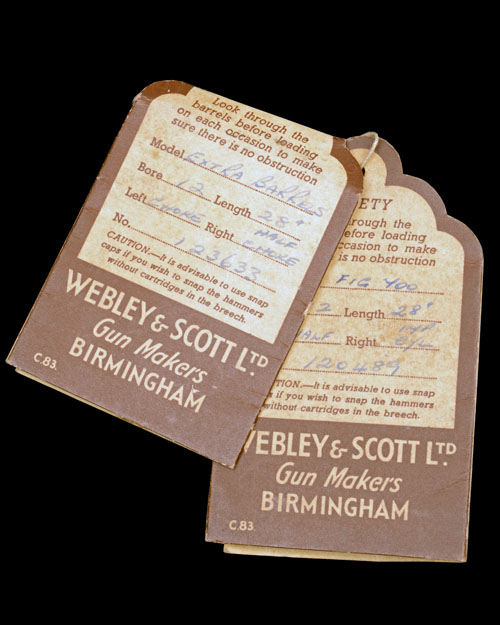 Look through the
barrels before loading
on each occasion to make
sure there is no obstruction
Model EXTRA BARRELS
Bore 12 Length 28"
Left CHOKE Right HALF CHOKE
No. 123633
CAUTION.—It is advisable to use snap
caps if you wish to snap the hammers
without cartridges in the breech.
WEBLEY & SCOTT LTD
Gun Makers
BIRMINGHAM
C.83.
ETY
rough the
efore loading
ccasion to make
is no obstruction
FIG 400
2 Length 28"
ALF Right
120489
TION.—It is advisable to use snap
s if you wish to snap the hammers
without cartridges in the breech.
WEBLEY & SCOTT LTD
Gun Makers
BIRMINGHAM
C.83.